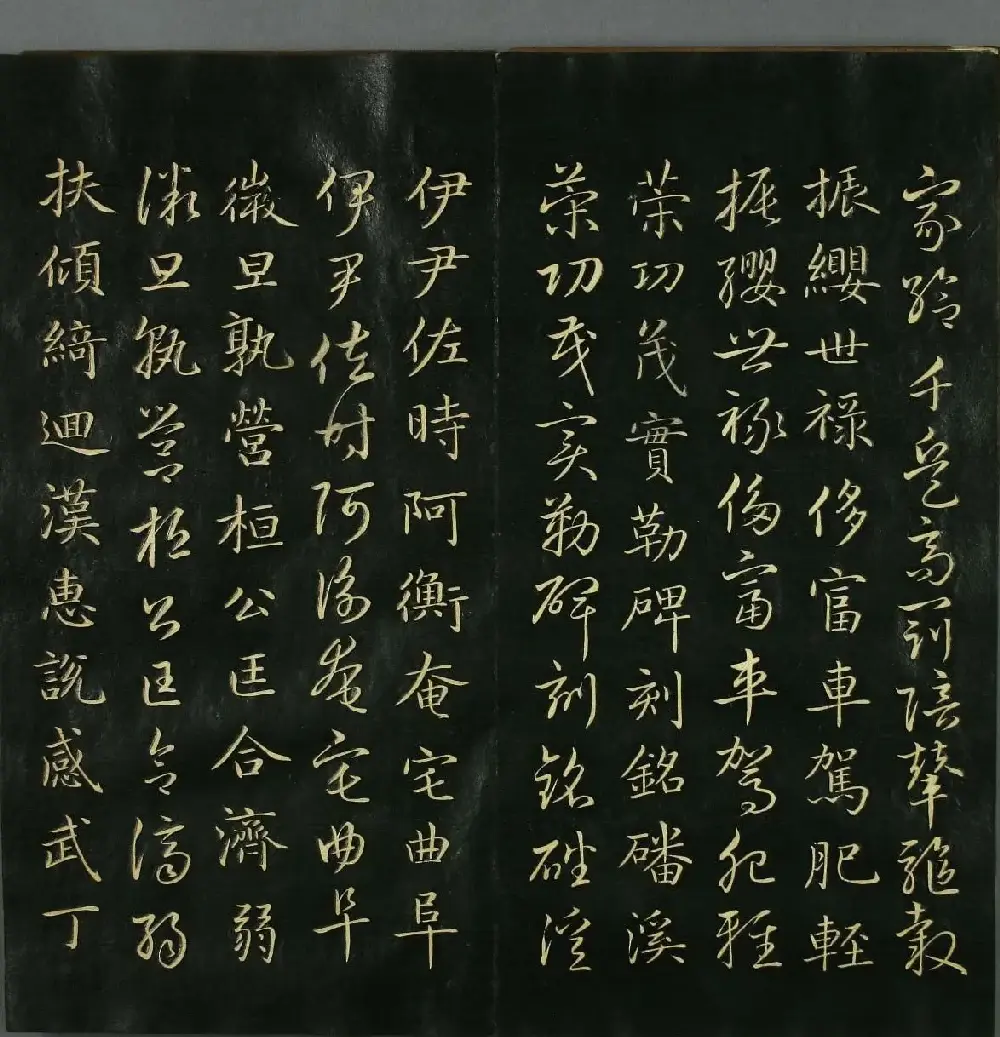 家給千兵高冠陪輦驅轂
振纓世禄侈富車駕肥輕
振纓世禄侈富車駕肥輕
策功茂實勒碑刻銘磻溪
策功茂實勒碑刻銘磻溪
伊尹佐時阿衡奄宅曲阜
伊尹佐時阿衡奄宅曲阜
微旦孰營桓公匡合濟弱
微旦孰營桓公匡合濟弱
扶傾綺迴漢惠說感武丁